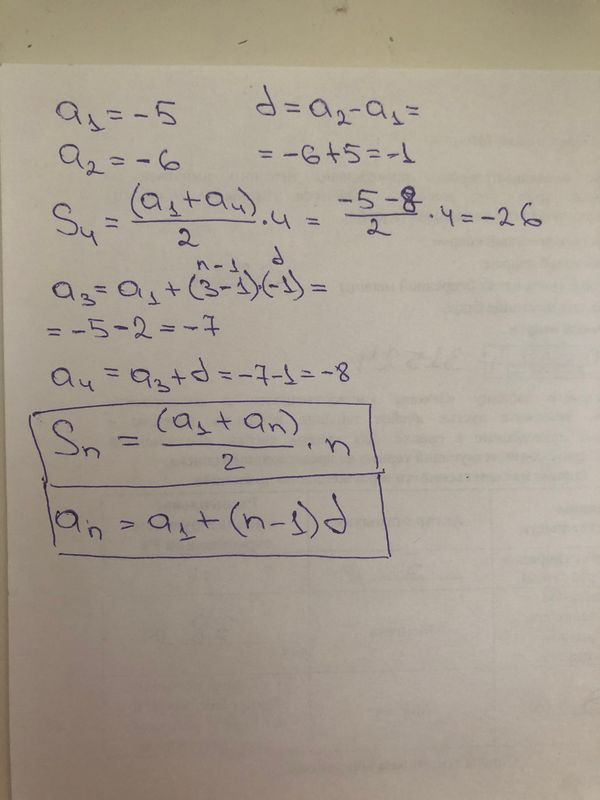 a₁ = -5
d = a₂ - a₁ =
a₂ = -6
= -6+5 = -1
S₄ = (a₁ + a₄)/2 · 4 = (-5-8)/2 · 4 = -26
n-1 d
a₃ = a₁ + (3-1)·(-1) =
= -5 - 2 = -7
a₄ = a₃ + d = -7-1 = -8
Sₙ = (a₁ + aₙ)/2 · n
aₙ = a₁ + (n-1)d